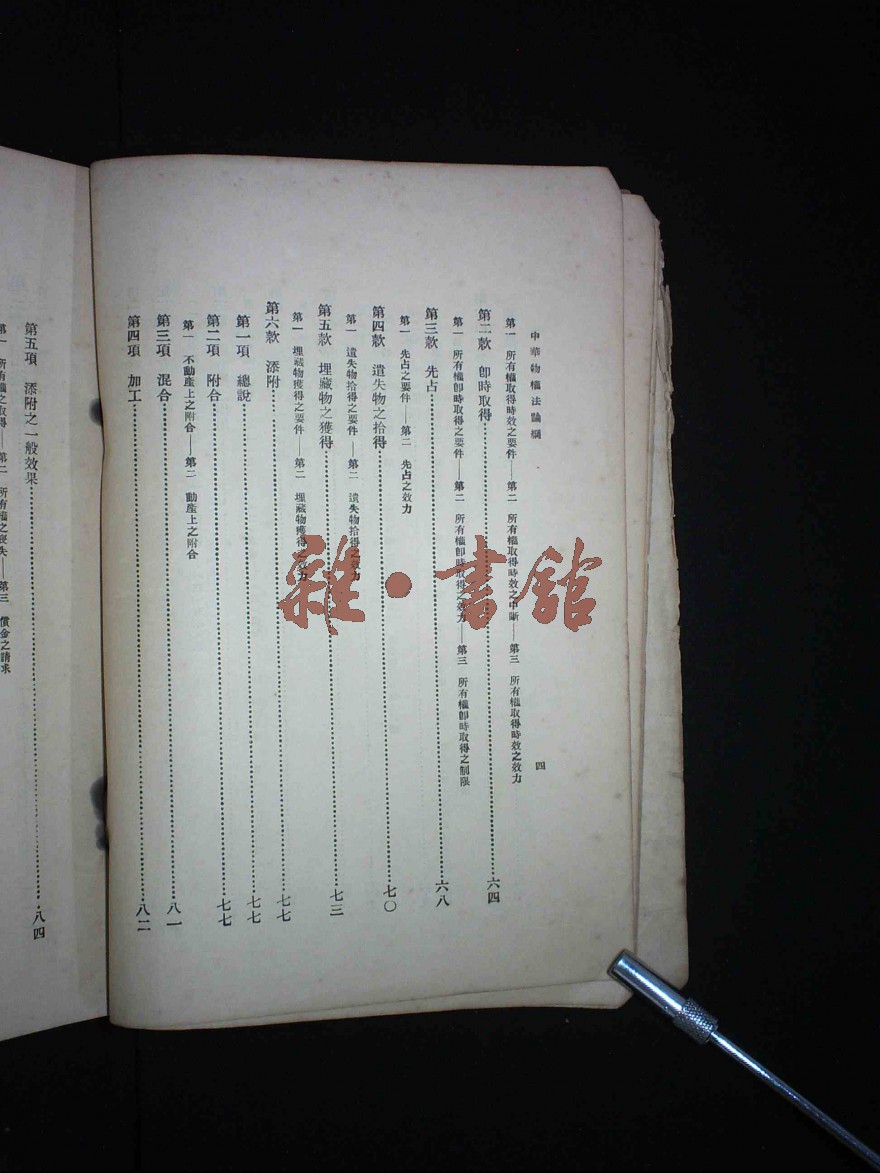 中華物權法論綱
四
第一 所有權取得時效之要件——第二 所有權取得時效之中斷——第三 所有權取得時效之效力
第二款 卽時取得……六四
第一 所有權卽時取得之要件——第二 所有權卽時取得之效力——第三 所有權卽時取得之制限
第三款 先占……六八
第一 先占之要件——第二 先占之效力
第四款 遺失物之拾得……七〇
第一 遺失物拾得之要件——第二 遺失物拾得之效力
第五款 埋藏物之獲得……七三
第一 埋藏物獲得之要件——第二 埋藏物獲得之效力
第六款 添附……七七
第一項 總說……七七
第二項 附合……七七
第一 不動產上之附合——第二 動產上之附合
第三項 混合……八一
第四項 加工……八二
第五項 添附之一般效果……八四
第一 所有權之取得——第二 所有權之喪失——第三 償金之請求
雜·書館